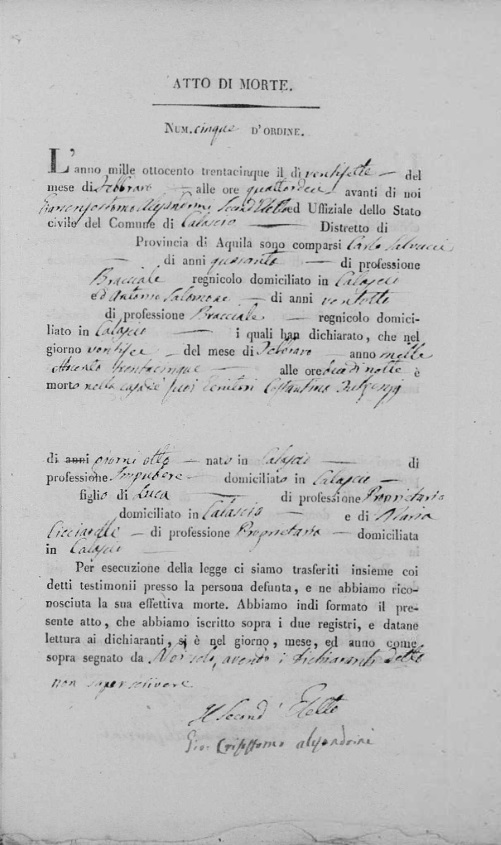 ATTO DI MORTE.
NUM. cinque D'ORDINE.
L'anno mille ottocento trentacinque il di ventisette del
mese di Febbraro alle ore quattordici avanti di noi
Second'Eletto ed Uffiziale dello Stato
civile del Comune di Calascio Distretto di
Provincia di Aquila sono comparsi Carlo
di anni quaranta di professione
Bracciale regnicolo domiciliato in Calascio
ed Antonio Salomone di anni ventotto
di professione Bracciale regnicolo domici-
liato in Calascio i quali han dichiarato, che nel
giorno ventisei del mese di Febbraro anno mille
ottocento trentacinque alle ore di notte è
morto nella casa de' suoi Genitori Costantino
di anni giorni otto nato in Calascio di
professione Impubere domiciliato in Calascio
figlio di Luca di professione Proprietario
domiciliato in Calascio e di Maria
di professione Proprietaria domiciliata
in Calascio
Per esecuzione della legge ci siamo trasferiti insieme coi
detti testimonii presso la persona defunta, e ne abbiamo rico-
nosciuta la sua effettiva morte. Abbiamo indi formato il pre-
sente atto, che abbiamo iscritto sopra i due registri, e datane
lettura ai dichiaranti, si è nel giorno, mese, ed anno come
sopra segnato da Noi solo, avendo i Dichiaranti detto
non saper scrivere
Il Second'Eletto
Gio: Crisistomo alesandrini